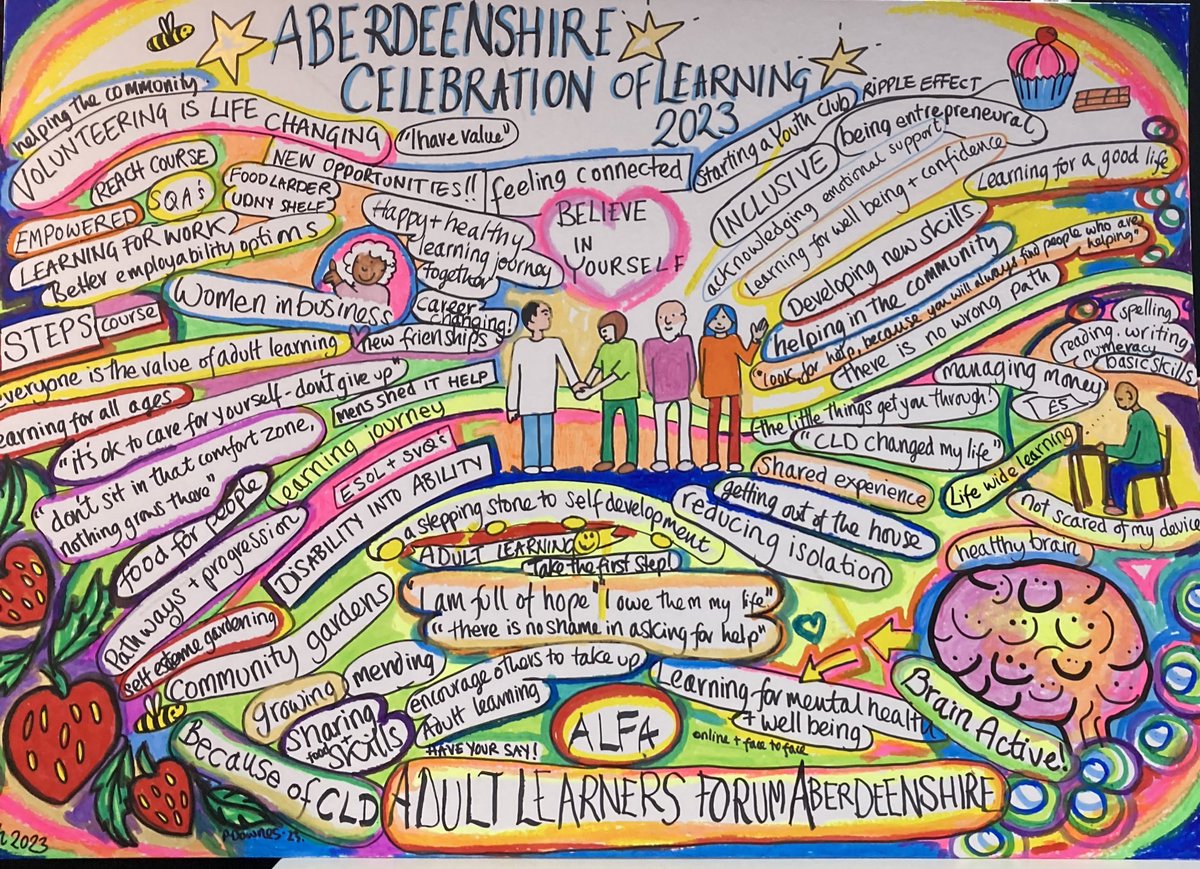 ABERDEENSHIRE
CELEBRATION OF LEARNING
2023
helping the community.
VOLUNTEERING IS LIFE CHANGING
"I have value"
REACH COURSE
NEW OPPORTUNITIES!!
feeling connected
starting a Youth Club
RIPPLE EFFECT
being entrepreneural
INCLUSIVE
acknowledging emotional support
Learning for well being + confidence
Learning for a good life
SQA's
FOOD LARDER
UDNY SHELF
EMPOWERED
LEARNING FOR WORK
Better employability options
Happy + healthy
learning journey
together
BELIEVE
IN
YOURSELF
Developing new skills
helping in the community
"look for help, because you will always find people who are
helping"
there is no wrong path
Women in business
career
changing!
new frienships
STEPS course
everyone is the value of adult learning
Learning for all ages
"it's ok to care for yourself - don't give up"
mens shed IT HELP
"don't sit in that comfort zone,
nothing grows there"
Learning journey
ESOL + SVQ's
DISABILITY INTO ABILITY
food for people
Pathways + progression
self esteem gardening
Community gardens
spelling
reading. writing
numeracy
basic skills
managing money
the little things get you through!
"CLD changed my life"
Shared experience
Life wide learning
getting out of the house
reducing isolation
not scared of my device
healthy brain
a stepping stone to self development
ADULT LEARNING
Take the first step!
"I am full of hope" "I owe them my life"
"there is no shame in asking for help"
growing
mending
sharing
food +
skills
encourage others to take up
Adult learning
HAVE YOUR SAY!
ALFA
Learning for mental health
+ well being
online + face to face
Brain Active!
Because of CLD
ADULT LEARNERS FORUM ABERDEENSHIRE
P Downes. 23.
2023